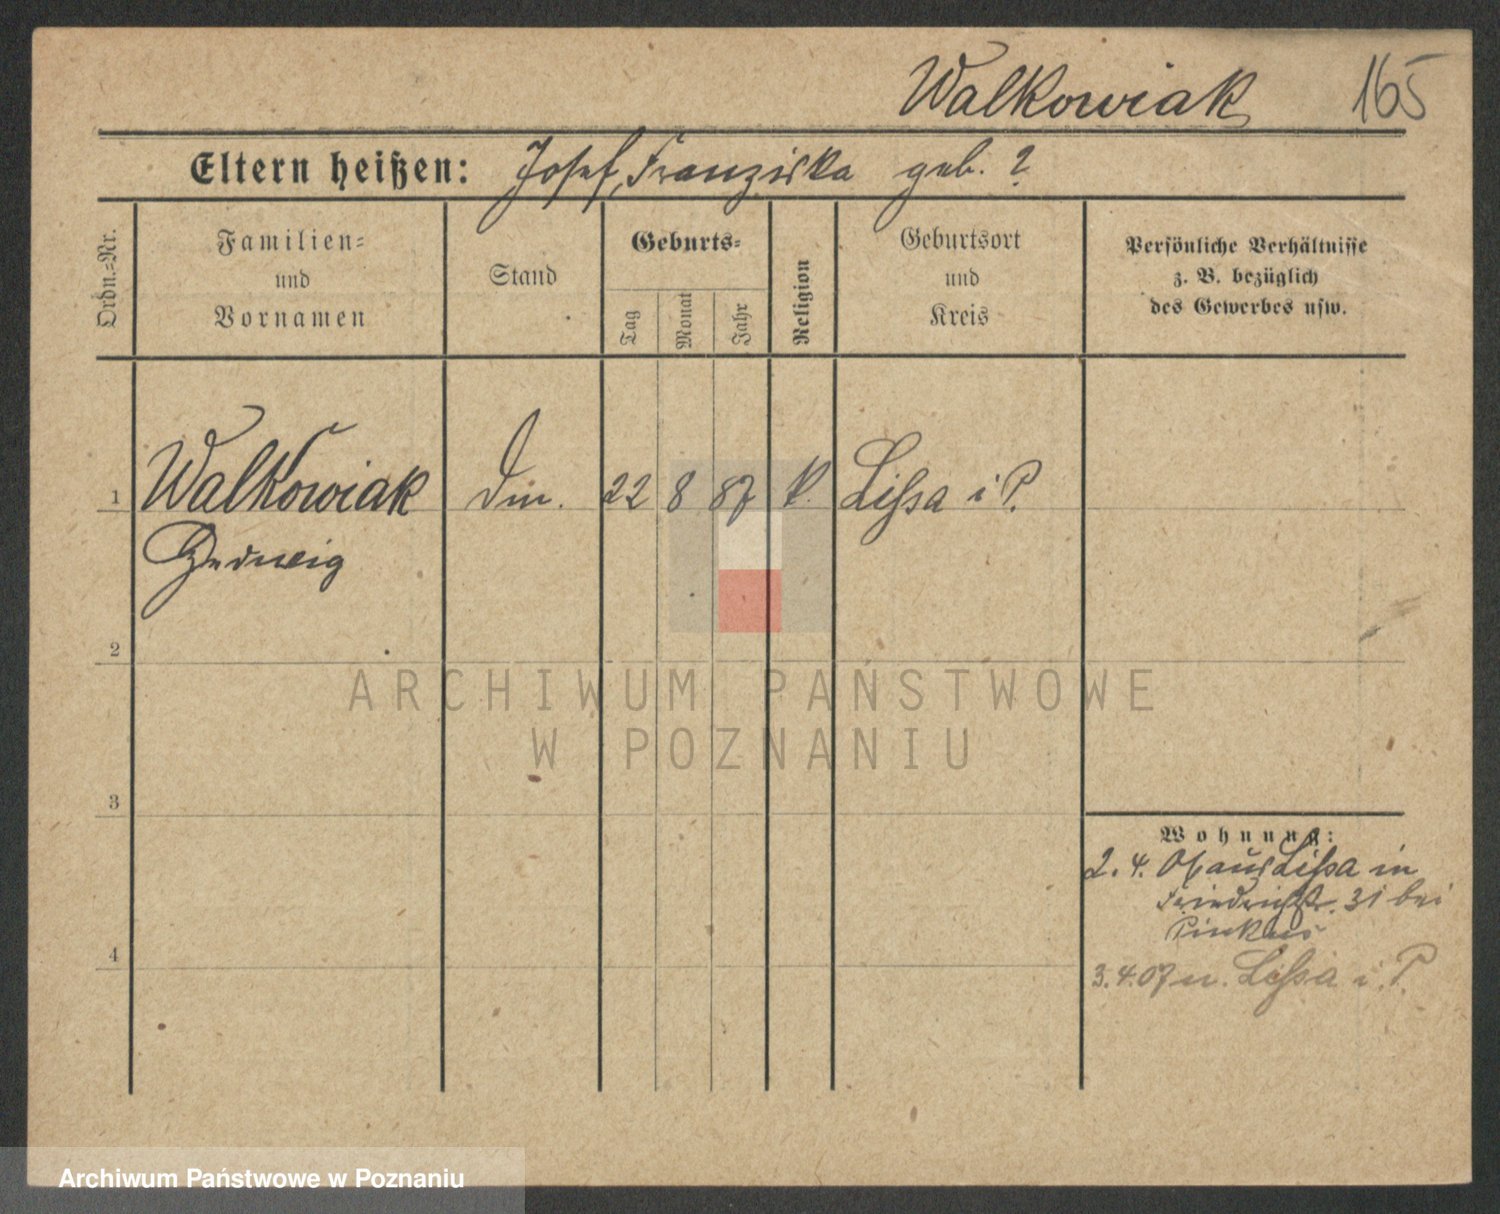 Walkowiak 165
Eltern heißen: Josef, Franziska geb. ?
Ordn.=Nr.
Familien=
und
Vornamen
Stand
Geburts=
Tag
Monat
Jahr
Religion
Geburtsort
und
Kreis
Persönliche Verhältnisse
z. B. bezüglich
des Gewerbes usw.
1 Walkowiak 22 8 87 k. Lissa i P.
Hedwig
2
3
4
Wohnung:
2. 4. aus Lissa in
Friedrichstr. 31 bei
Pinkus
3. 4. 07 n. Lissa i. P.
ARCHIWUM PAŃSTWOWE
W POZNANIU
Archiwum Państwowe w Poznaniu